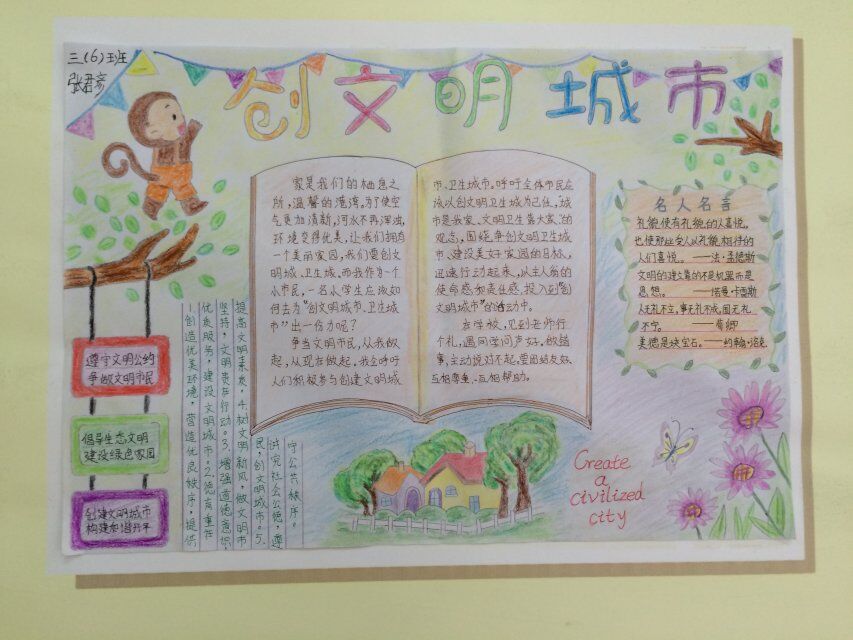 三(6)班
张君彦
创文明城市
家是我们的栖息之
所，温馨的港湾，为了使空
气更加清新，河水不再浑浊，
环境变得优美，让我们拥有
一个美丽家园，我们要创文
明城、卫生城。而我作为一个
小市民，一名小学生应该如
何去为“创文明城市、卫生城
市”出一份力呢？
争当文明市民，从我做
起，从现在做起，我会呼吁
人们积极参与创建文明城
市、卫生城市。呼吁全体市民应
该以创文明卫生城为己任，“城
市是我家、文明卫生靠大家”的
观念，围绕争创文明卫生城
市、建设美好家园的目标，
迅速行动起来，以主人翁的
使命感和责任感，投入到“创
文明城市”的活动中。
在学校，见到老师行
个礼，遇同学问声好。做错
事，主动说对不起，要团结友好、
互相尊重、互相帮助。
名人名言
礼貌使有礼貌的人喜悦，
也使那些受人以礼貌相待的
人们喜悦。——法·孟德斯
文明的建立靠的不是机器而是
思想。——诺曼·卡西斯
人无礼不立，事无礼不成，国无礼
不宁。——荀卿
美德是块宝石。——约翰·洛克
遵守文明公约
争做文明市民
倡导生态文明
建设绿色家园
创建文明城市
构建和谐开平
1.创造优美环境，营造优良秩序，提供
优质服务，建设文明城市。2.德育重在
坚持，文明贵在行动。3.增强道德意识
提高文明素质。4.树文明新风，做文明市
民，创文明城市。5.
讲究社会公德，遵
守公共秩序。
Create
a
civilized
city